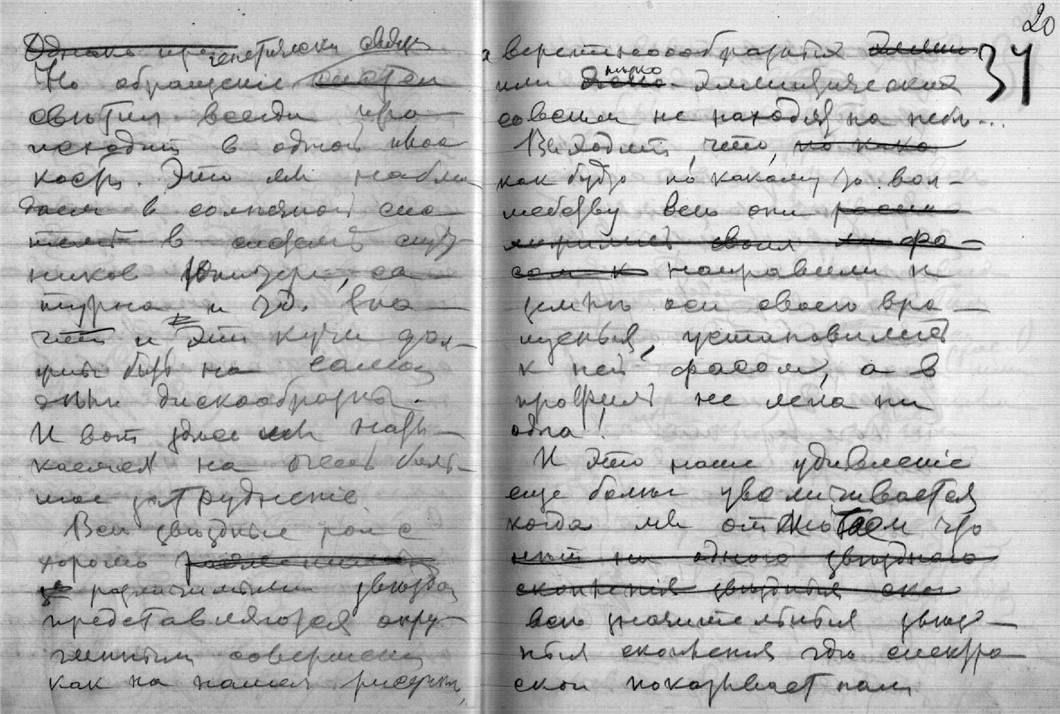 Однако при генетически связи
Но обращеніе систем
свѣтил всегда про-
исходит в одной плос
кости. Это мы наблю
даем в солнечной сис-
темѣ в системѣ спут-
ников Юпитера, са-
турна и т.д. Зна-
чит и эти кучи дол-
жны быть на самом
дѣлѣ дискообразны.
И вот здѣсь мы наты-
каемся на очень боль-
шое затрудненіе
Всѣ звѣздные рои с
хорошо
различимыми звѣздам
представляются окру-
гленными совершенно
как на нашем рисункѣ,
а веретенообразных
или эллиптических
совсѣм не находят на небѣ...
Выходит, что, но как
как будто по какому то вол-
шебству всѣ они
своим фа-
сом к направили к
землѣ оси своего вра-
щенья, установились
к ней фасом, а в
профиль не легла ни
одна!
И это наше удивленіе
еще больше увеличивается
когда мы отмѣтаем что
нѣт ни одного звѣзднаго
скопленія звѣздныя ско
всѣ значительныя звѣзд-
ныя скопленія гдѣ спектро-
скоп показывает нам
20
31